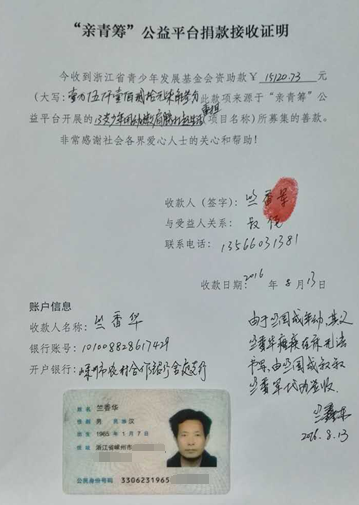 “亲青筹”公益平台捐款接收证明
今收到浙江省青少年发展基金会资助款 ¥ 15120.73 元
(大写: 此款项来源于“亲青筹”公
益平台开展的 项目名称)所募集的善款。
非常感谢社会各界爱心人士的关心和帮助!
收款人(签字): 竺香
与受益人关系: 叔侄
联系电话: 13566031381
收款日期: 2016 年 8 月 13
账户信息
收款人名称: 竺香华
银行账号: 101008828617429
开户银行:
由于竺国成年幼,其父
竺香华
由竺国成叔叔
竺香军代为签收.
2016.8.13
姓名 竺香华
性别 男 民族 汉
出生 1965 年 1 月 7 日
住址 浙江省嵊州市
公民身份号码 3306231965